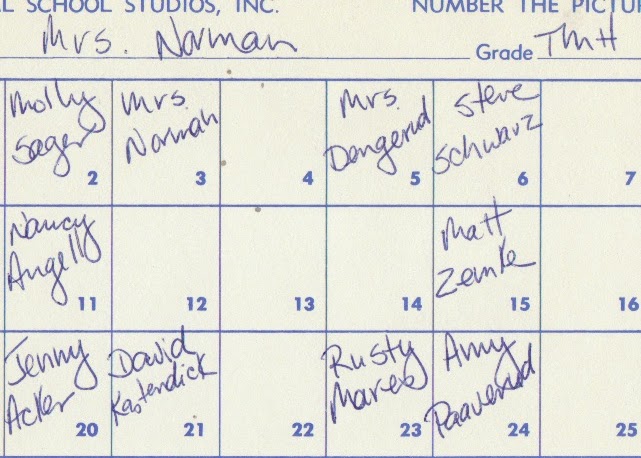 L SCHOOL STUDIOS, INC. NUMBER THE PICTUR
Mrs. Norman Grade TMH
Molly Mrs. Mrs. Steve
Sager Norman Dengerud Schwarz
2 3 4 5 6 7
Nancy Matt
Angell Zemke
11 12 13 14 15 16
Jenny David Rusty Amy
Acker Kastendick Mareb Paaverud
20 21 22 23 24 25